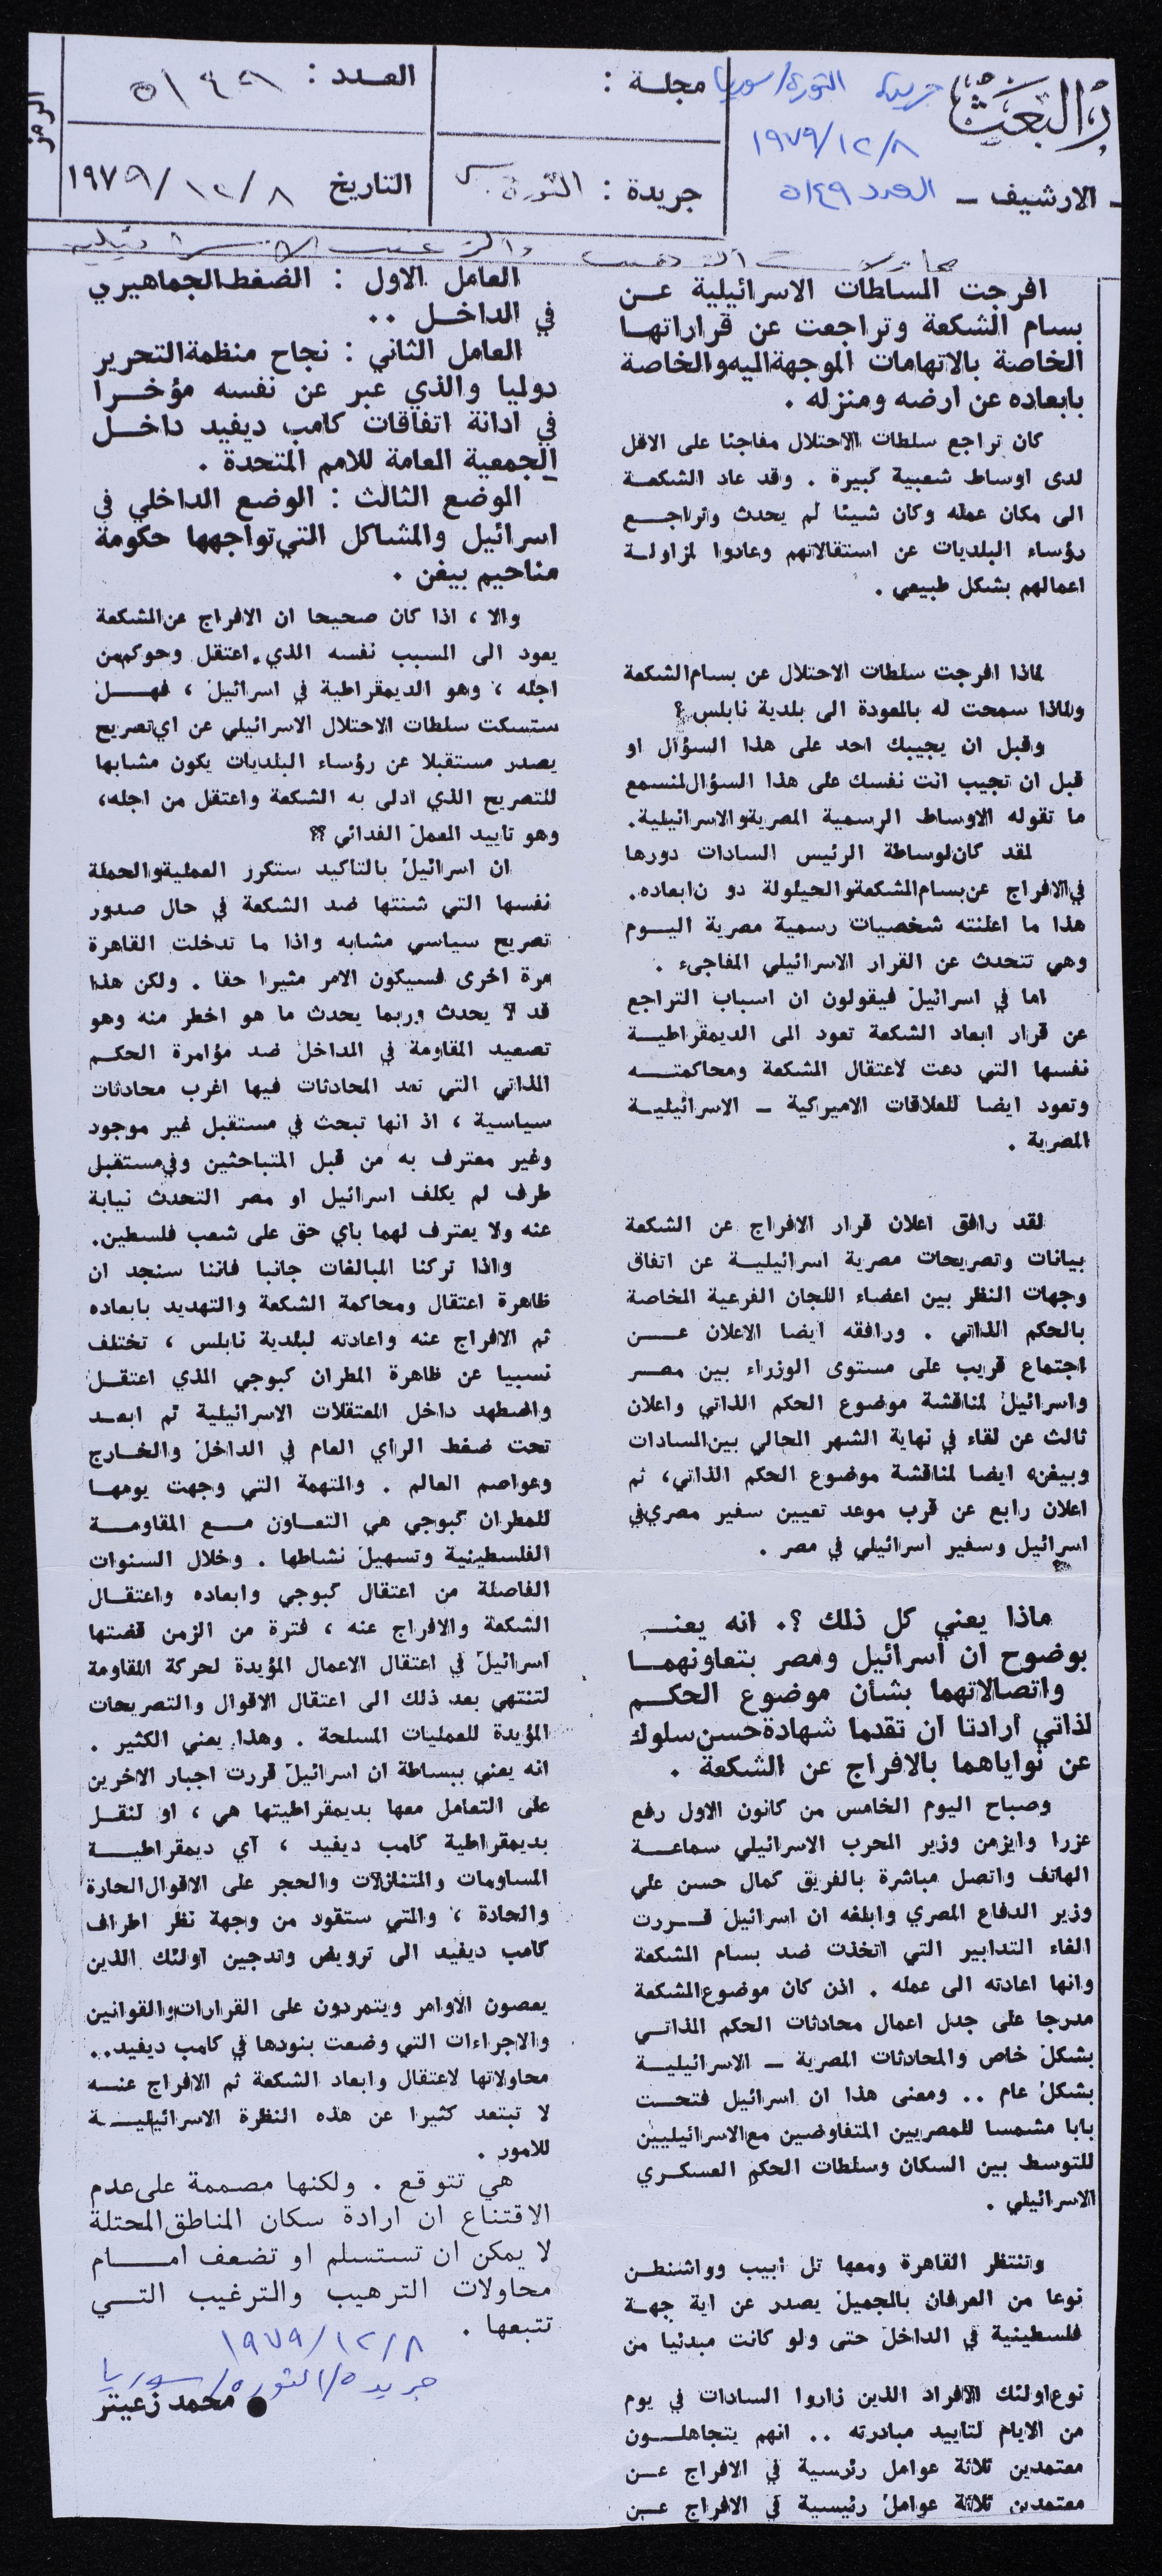 دار البعث
الارشيف
جريدة الثورة/سوريا
١٩٧٩/١٢/٨
العدد ٥١٤٩
مجلة :
جريدة : الثورة س
العدد : ٥١٤٩
التاريخ ١٩٧٩/١٢/٨
الرمز
محاولات الترهيب والترغيب الاسرائيلية
افرجت السلطات الاسرائيلية عن
بسام الشكعة وتراجعت عن قراراتها
الخاصة بالاتهامات الموجهة اليه والخاصة
بابعاده عن ارضه ومنزله .
كان تراجع سلطات الاحتلال مفاجئا على الاقل
لدى اوساط شعبية كبيرة . وقد عاد الشكعة
الى مكان عمله وكان شيئا لم يحدث وتراجع
رؤساء البلديات عن استقالاتهم وعادوا لمزاولة
اعمالهم بشكل طبيعي .
لماذا افرجت سلطات الاحتلال عن بسام الشكعة
ولماذا سمحت له بالعودة الى بلدية نابلس ؟
وقبل ان يجيبك احد على هذا السؤال او
قبل ان تجيب انت نفسك على هذا السؤال لنسمع
ما تقوله الاوساط الرسمية المصرية والاسرائيلية.
لقد كان لوساطة الرئيس السادات دورها
في الافراج عن بسام الشكعة والحيلولة دو ن ابعاده.
هذا ما اعلنته شخصيات رسمية مصرية اليوم
وهي تتحدث عن القرار الاسرائيلي المفاجىء .
اما في اسرائيل فيقولون ان اسباب التراجع
عن قرار ابعاد الشكعة تعود الى الديمقراطية
نفسها التي دعت لاعتقال الشكعة ومحاكمته
وتعود ايضا للعلاقات الاميركية ـ الاسرائيلية
المصرية .
لقد رافق اعلان قرار الافراج عن الشكعة
بيانات وتصريحات مصرية اسرائيلية عن اتفاق
وجهات النظر بين اعضاء اللجان الفرعية الخاصة
بالحكم الذاتي . ورافقه ايضا الاعلان عن
اجتماع قريب على مستوى الوزراء بين مصر
واسرائيل لمناقشة موضوع الحكم الذاتي واعلان
ثالث عن لقاء في نهاية الشهر الحالي بين السادات
وبيغن ايضا لمناقشة موضوع الحكم الذاتي، ثم
اعلان رابع عن قرب موعد تعيين سفير مصري في
اسرائيل وسفير اسرائيلي في مصر .
ماذا يعني كل ذلك ؟. انه يعنـ
بوضوح ان اسرائيل ومصر بتعاونهما
واتصالاتهما بشأن موضوع الحكم
لذاتي ارادتا ان تقدما شهادة حسن سلوك
عن نواياهما بالافراج عن الشكعة .
وصباح اليوم الخامس من كانون الاول رفع
عزرا وايزمن وزير الحرب الاسرائيلي سماعة
الهاتف واتصل مباشرة بالفريق كمال حسن علي
وزير الدفاع المصري وابلغه ان اسرائيل قررت
الغاء التدابير التي اتخذت ضد بسام الشكعة
وانها اعادته الى عمله . اذن كان موضوع الشكعة
مدرجا على جدل اعمال محادثات الحكم الذاتي
بشكل خاص والمحادثات المصرية ـ الاسرائيلية
بشكل عام .. ومعنى هذا ان اسرائيل فتحت
بابا مشمسا للمصريين المتفاوضين مع الاسرائيليين
للتوسط بين السكان وسلطات الحكم العسكري
الاسرائيلي .
وتنتظر القاهرة ومعها تل ابيب وواشنطن
نوعا من العرفان بالجميل يصدر عن اية جهة
فلسطينية في الداخل حتى ولو كانت مبدئيا من
نوع اولئك الافراد الذين زاروا السادات في يوم
من الايام لتاييد مبادرته .. انهم يتجاهلون
معتمدين ثلاثة عوامل رئيسية في الافراج عن
معتمدين ثلاثة عوامل رئيسية في الافراج عن
العامل الاول : الضغط الجماهيري
في الداخل ..
العامل الثاني : نجاح منظمة التحرير
دوليا والذي عبر عن نفسه مؤخرا
في ادانة اتفاقات كامب ديفيد داخل
الجمعية العامة للامم المتحدة .
الوضع الثالث : الوضع الداخلي في
اسرائيل والمشاكل التي تواجهها حكومة
مناحيم بيغن .
والا ، اذا كان صحيحا ان الافراج عن الشكعة
يعود الى السبب نفسه الذي اعتقل وحوكم من
اجله ، وهو الديمقراطية في اسرائيل ، فهل
ستسكت سلطات الاحتلال الاسرائيلي عن اي تصريح
يصدر مستقبلا عن رؤساء البلديات يكون مشابها
للتصريح الذي ادلى به الشكعة واعتقل من اجله،
وهو تاييد العمل الفدائي ؟؟
ان اسرائيل بالتاكيد ستكرر العملية والحملة
نفسها التي شنتها ضد الشكعة في حال صدور
تصريح سياسي مشابه واذا ما تدخلت القاهرة
مرة اخرى فسيكون الامر مثيرا حقا . ولكن هذا
قد لا يحدث وربما يحدث ما هو اخطر منه وهو
تصعيد المقاومة في الداخل ضد مؤامرة الحكم
الذاتي التي تعد المحادثات فيها اغرب محادثات
سياسية ، اذ انها تبحث في مستقبل غير موجود
وغير معترف به من قبل المتباحثين وفي مستقبل
طرف لم يكلف اسرائيل او مصر التحدث نيابة
عنه ولا يعترف لهما باي حق على شعب فلسطين.
واذا تركنا المبالغات جانبا فاننا سنجد ان
ظاهرة اعتقال ومحاكمة الشكعة والتهديد بابعاده
ثم الافراج عنه واعادته لبلدية نابلس ، تختلف
نسبيا عن ظاهرة المطران كبوجي الذي اعتقل
واضطهد داخل المعتقلات الاسرائيلية ثم ابعد
تحت ضغط الراي العام في الداخل والخارج
وعواصم العالم . والتهمة التي وجهت يومها
للمطران كبوجي هي التعاون مع المقاومة
الفلسطينية وتسهيل نشاطها . وخلال السنوات
الفاصلة من اعتقال كبوجي وابعاده واعتقال
الشكعة والافراج عنه ، فترة من الزمن قضتها
اسرائيل في اعتقال الاعمال المؤيدة لحركة المقاومة
لتنتهي بعد ذلك الى اعتقال الاقوال والتصريحات
المؤيدة للعمليات المسلحة . وهذا يعني الكثير .
انه يعني ببساطة ان اسرائيل قررت اجبار الاخرين
على التعامل معها بديمقراطيتها هي ، او لنقل
بديمقراطية كامب ديفيد ، اي ديمقراطية
المساومات والتنازلات والحجر على الاقوال الحارة
والحادة ، والتي ستقود من وجهة نظر اطراف
كامب ديفيد الى ترويض وتدجين اولئك الذين
يعصون الاوامر ويتمردون على القرارات والقوانين
والاجراءات التي وضعت بنودها في كامب ديفيد..
محاولاتها لاعتقال وابعاد الشكعة ثم الافراج عنه
لا تبتعد كثيرا عن هذه النظرة الاسرائيلية
للامور .
هي تتوقع . ولكنها مصممة على عدم
الاقتناع ان ارادة سكان المناطق المحتلة
لا يمكن ان تستسلم او تضعف امام
محاولات الترهيب والترغيب التي
تتبعها .
١٩٧٩/١٢/٨
جريدة/الثورة/سوريا
● محمد زعيتر